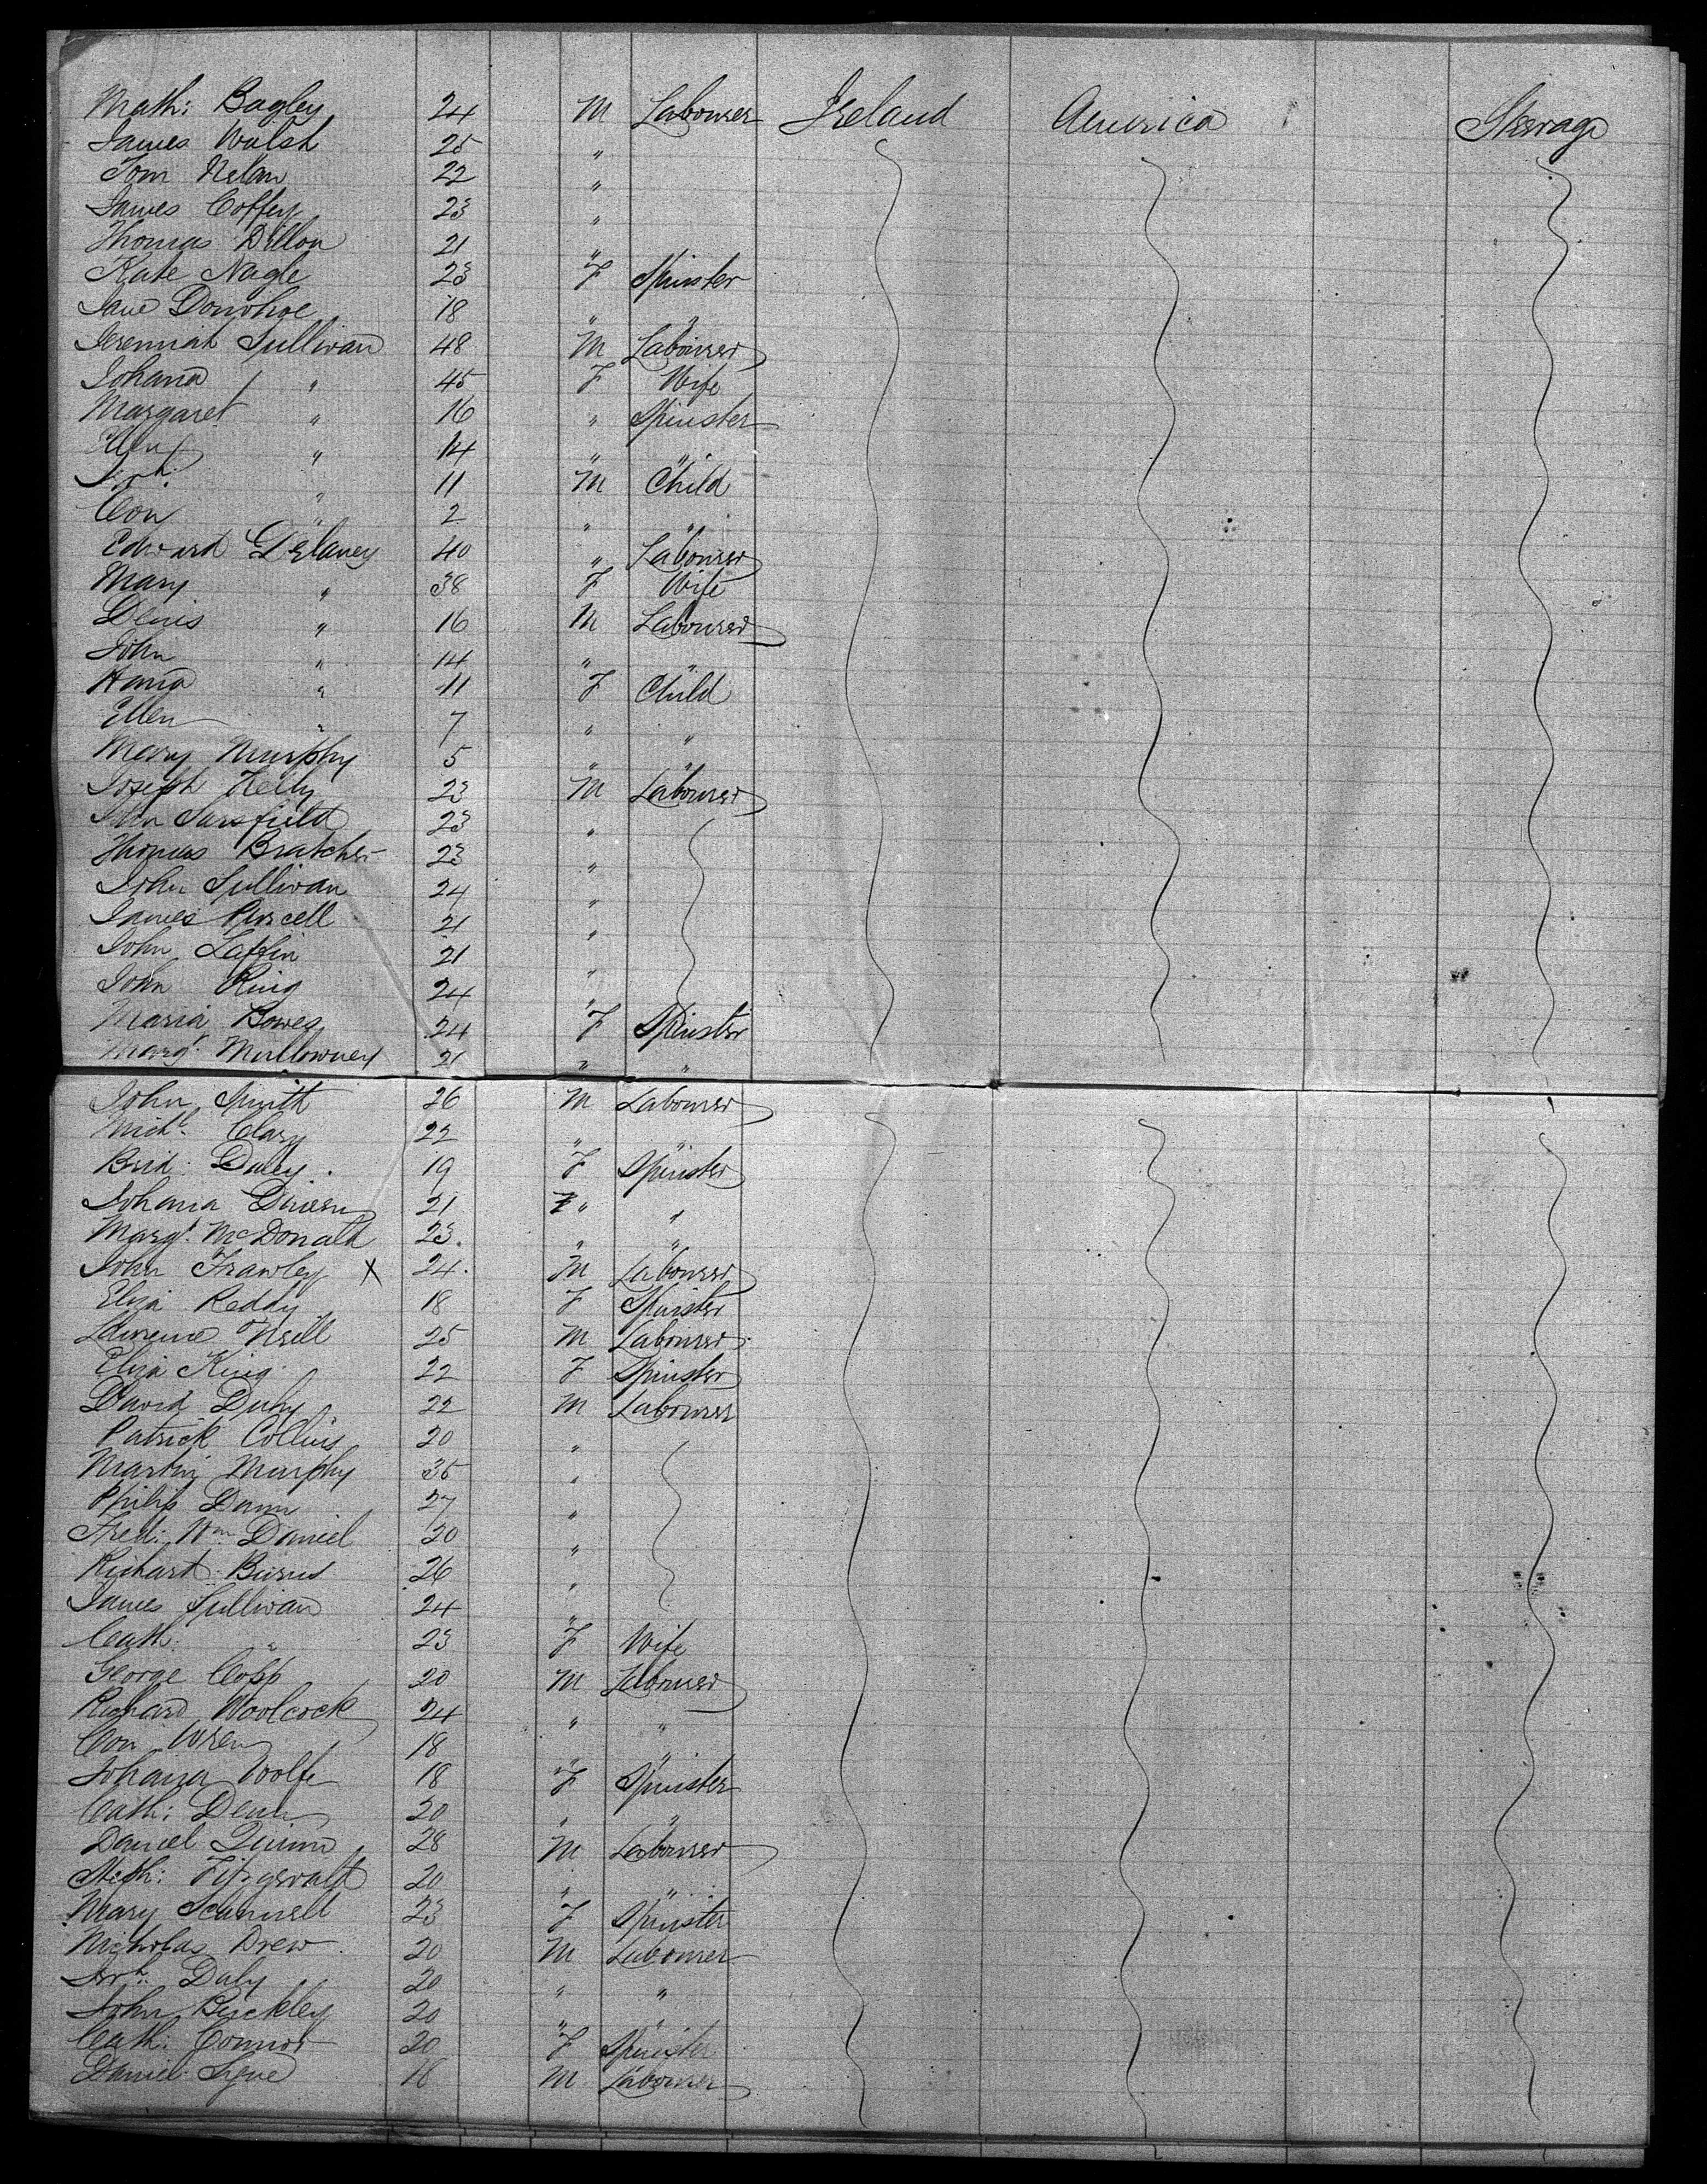 Math: Bagley 24 M Labourer Ireland America Steerage
James Walsh 25 "
Tom Nelan 22 "
James Coffey 23 "
Thomas Dillon 21 "
Kate Nagle 23 F Spinster
Jane Donohoe 18 " "
Jeremiah Sullivan 48 M Labourer
Johana " 45 F Wife
Margaret " 16 " Spinster
Ellen " 14 " "
Jerh. " 11 M Child
Con " 2 " "
Edward Delaney 40 " Labourer
Mary " 38 F Wife
Denis " 16 M Labourer
John " 14 " "
Hana " 11 F Child
Ellen " 7 " "
Mary Murphy 5 " "
Joseph Kelly 23 M Labourer
John Sarsfield 23 "
Thomas Bratcher 23 "
John Sullivan 24 "
James Purcell 21 "
John Laffin 21 "
John Ring 24 "
Maria Bowes 24 F Spinster
Margt. Mullowney 21 " "
John Smith 26 M Labourer
Michl. Clary 22 " "
Brid. Daley 19 F Spinster
Johana 21 F " "
Margt. McDonald 23. " "
John Frawley X 24. M Labourer
Eliza Reddy 18 F Spinster
Laurence O'Neill 25 M Labourer
Eliza King 22 F Spinster
David Duhy 22 M Labourer
Patrick Collins 20 "
Martin Murphy 35 "
Philip Dunn 27 "
Fred: Wm. Daniel 20 "
Richard Burns 26 "
James Sullivan 24 "
Cath: " 23 F Wife
George Copp 20 M Labourer
Richard Woolcock 24 " "
Con Wren 18 " "
Johana Wolfe 18 F Spinster
Cath: 20 " "
Daniel Quinn 28 M Labourer
Steph: Fitzgerald 20 " "
Mary Scannell 23 F Spinster
Nicholas Drew 20 M Labourer
Jerh. Daly 20 " "
John Buckley 20 " "
Cath: Connor 20 F Spinster
Daniel Lyne 18 M Labourer